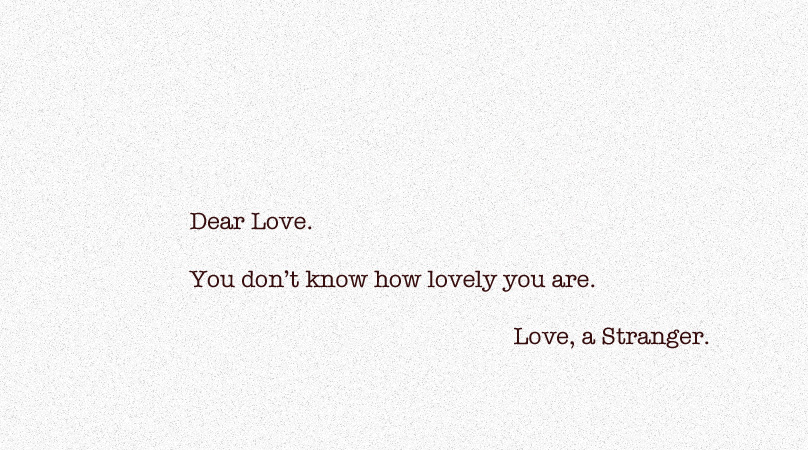 Dear Love.
You don’t know how lovely you are.
Love, a Stranger.